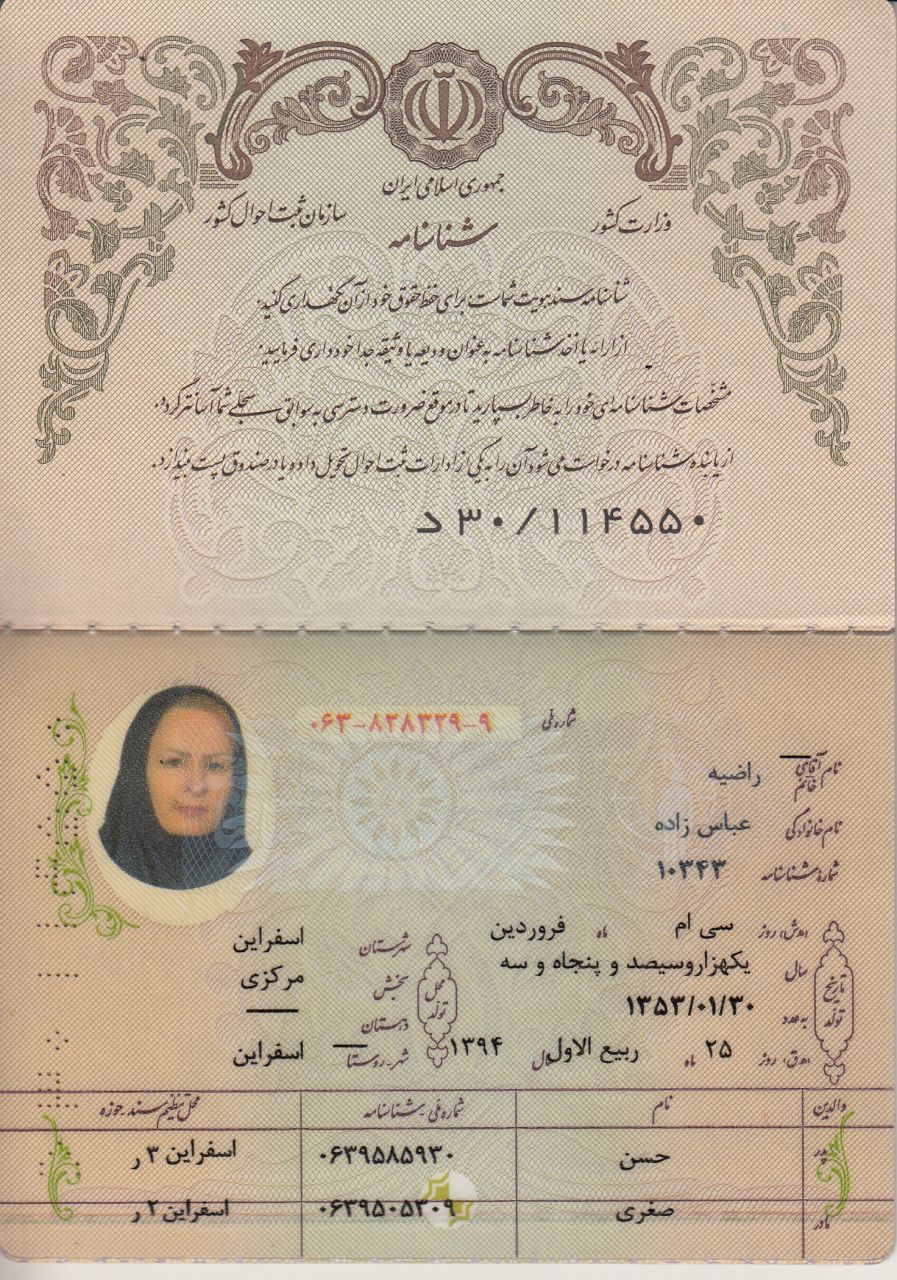 جمهوری اسلامی ایران
وزارت کشور
سازمان ثبت احوال کشور
شناسنامه
شناسنامه سند هویت شماست، برای حفظ حقوق خود از آن نگهداری کنید.
از ارائه یا اخذ شناسنامه به عنوان ودیعه یا وثیقه جدا خودداری فرمایید.
مشخصات شناسنامه‌ای خود را به خاطر بسپارید تا در موقع ضرورت دسترسی به سوابق سجلی شما آسانتر گردد.
از یابنده شناسنامه درخواست می‌شود آن را به یکی از ادارات ثبت احوال تحویل داده یا در صندوق پست بیندازد.
د۳۰/۱۱۴۵۵۰
شماره ملی ۰۶۳-۸۲۸۳۲۹-۹
نام آقای خانم راضیه
نام خانوادگی عباس زاده
شماره شناسنامه ۱۰۳۴۳
تاریخ تولد
(ه‍.ش) روز سی ام ماه فروردین
سال یکهزاروسیصد و پنجاه و سه
به عدد ۱۳۵۳/۰۱/۳۰
(ه‍.ق) روز ۲۵ ماه ربیع الاول سال ۱۳۹۴
محل تولد
شهرستان اسفراین
بخش مرکزی
دهستان —
شهر-روستا — اسفراین
والدین نام شماره ملی-شناسنامه محل تنظیم سند-حوزه
پدر حسن ۰۶۳۹۵۸۵۹۳۰ اسفراین ۳ ر
مادر صغری ۰۶۳۹۵۰۵۳۰۹ اسفراین ۲ ر